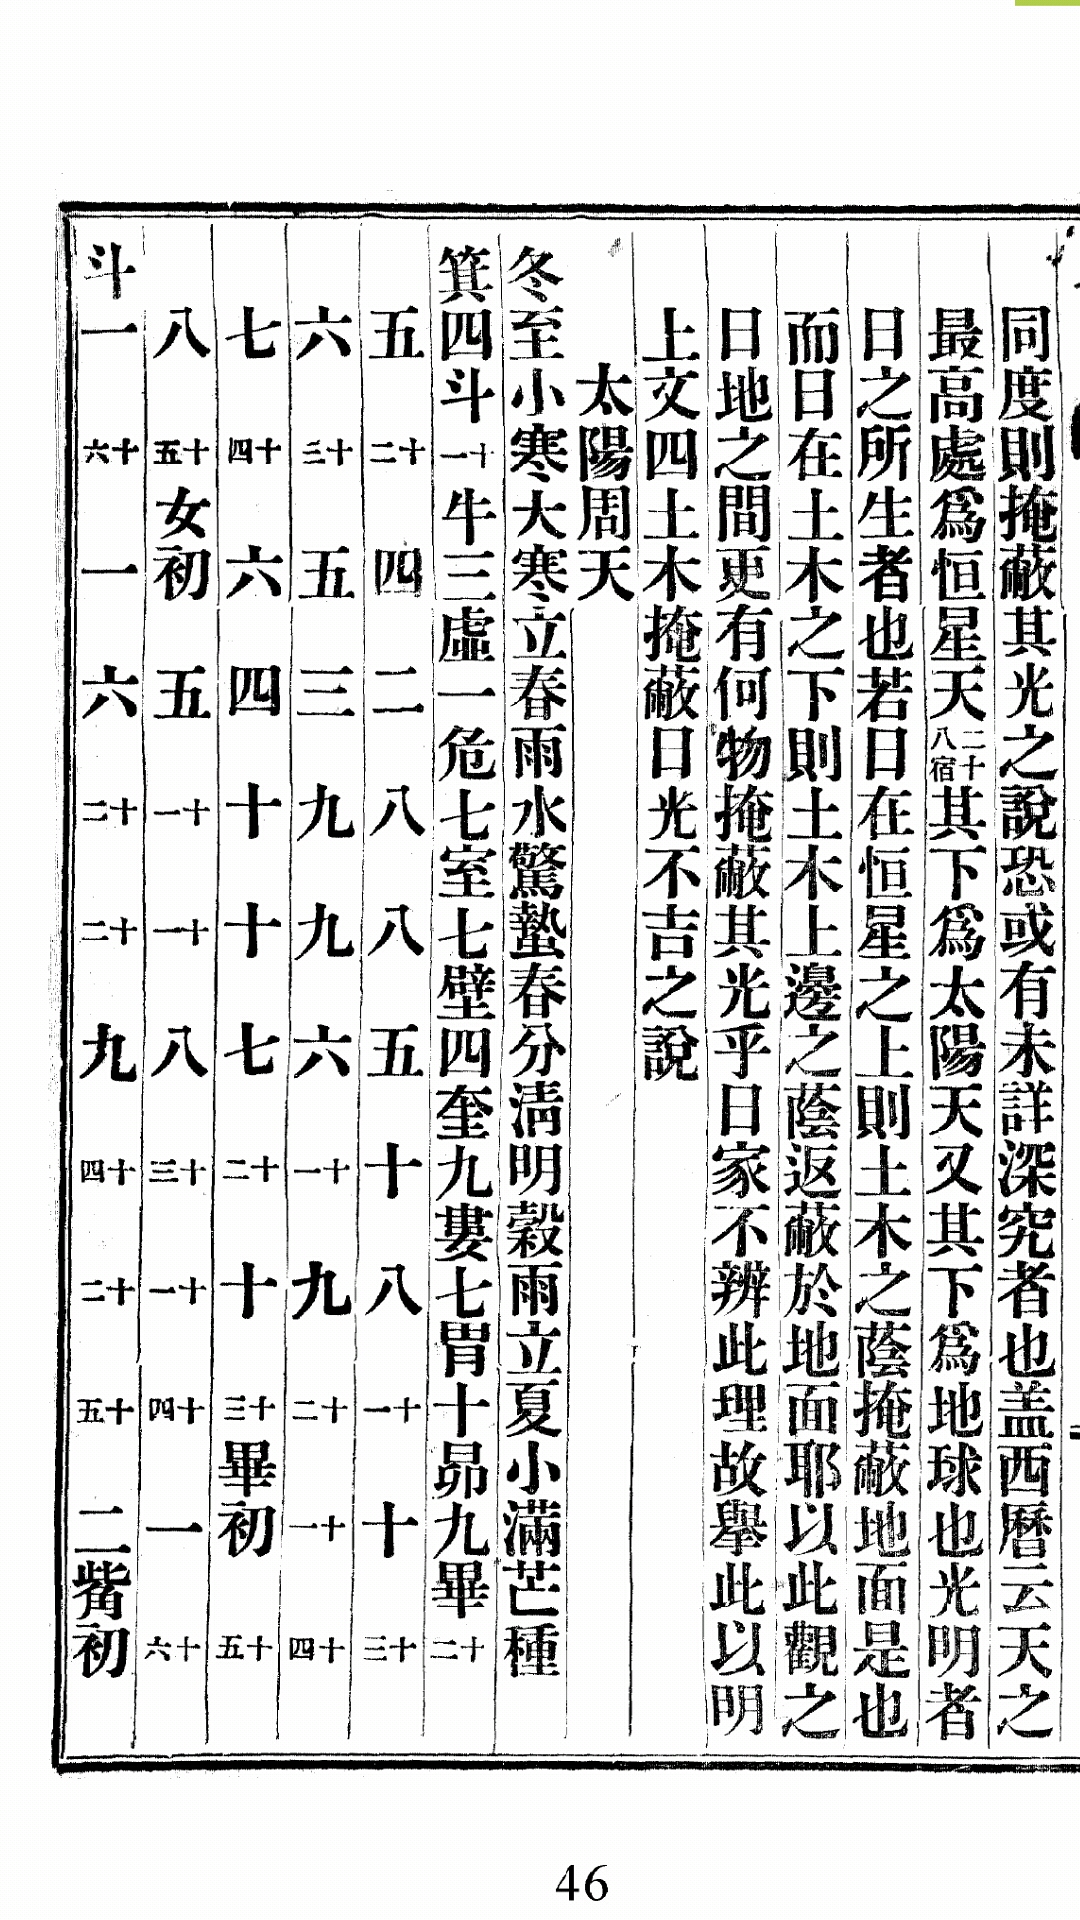 同度則掩蔽其光之說恐或有未詳深究者也盖西曆云天之
最高處爲恒星天二十八宿其下爲太陽天又其下爲地球也光明者
日之所生者也若日在恒星之上則土木之蔭掩蔽地面是也
而日在土木之下則土木上邊之蔭返蔽於地面耶以此觀之
日地之間更有何物掩蔽其光乎日家不辨此理故擧此以明
上文四土木掩蔽日光不吉之說
太陽周天
冬至小寒大寒立春雨水驚蟄春分淸明穀雨立夏小滿芒種
箕四斗十一牛三虛一危七室七壁四奎九婁七胃十昴九畢十二
五十二四二八八五十八十一十十三
六十三五三九九六十一九十二十一十四
七十四六四十十七十二十十三畢初十五
八十五女初五十一十一八十三十一十四一十六
斗一十六一六十二十二九十四十二十五二觜初
46